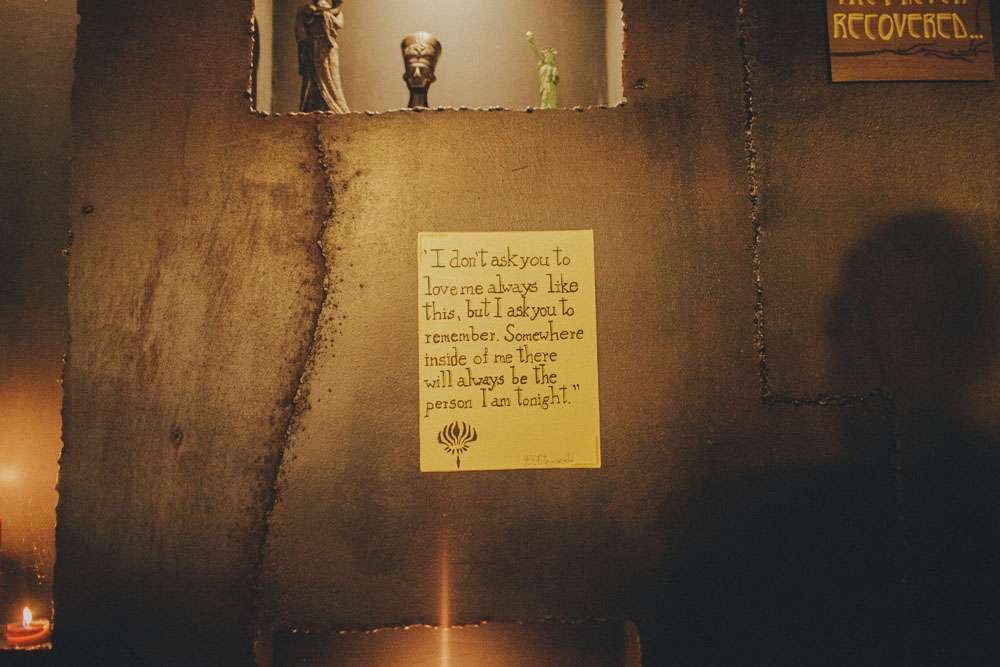 RECOVERED...
"I don't ask you to
love me always like
this, but I ask you to
remember. Somewhere
inside of me there
will always be the
person I am tonight."